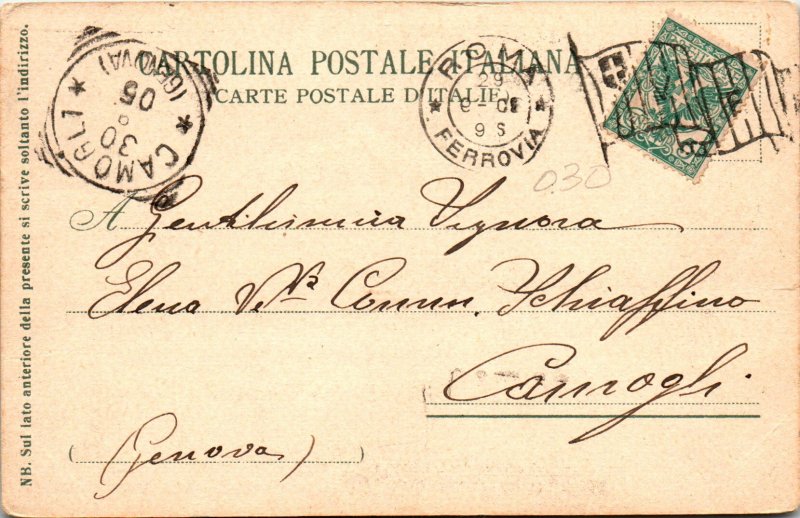 CARTOLINA POSTALE ITALIANA
(CARTE POSTALE D'ITALIE)
NB. Sul lato anteriore della presente si scrive soltanto l'indirizzo.
CAMOGLI
(GENOVA)
30
05
ROMA
29
FERROVIA
030
A Gentilissima Signora
Elena Va Comm. Schiaffino
Camogli
(Genova)